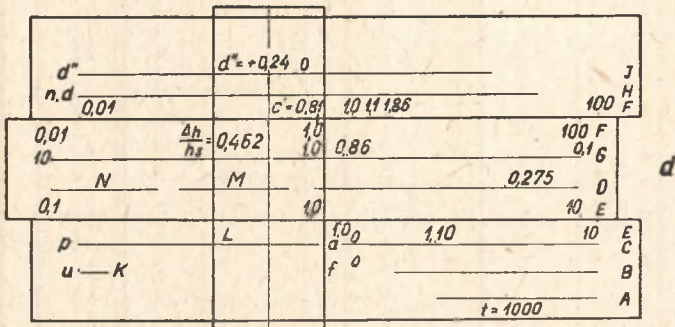 d" d"=+0,24 0 J
n,d H
0,01 c'=0,81 1,0 1,1 1,86 100 F
0,01 Δh/hs=0,462 1,0 100 F
10 1,0 0,86 0,1 G
N M 0,275 D
0,1 1,0 10 E
L 1,0 0 1,10 10 E
p a C
u K f 0 B
A
t=1000
d